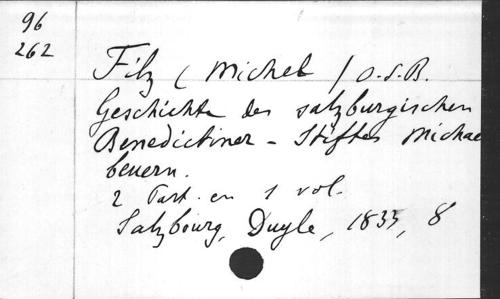 96
262
Filz (Michel) O.S.B.
Geschichte des salzburgischen
Benedictiner - Stiftes Michae
beuern.
2 Part. en 1 vol.
Salzbourg, Duyle, 1833, 8